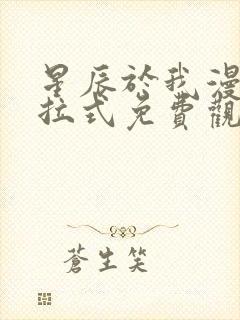 星辰於我漫
拉式免費觀
蒼生笑